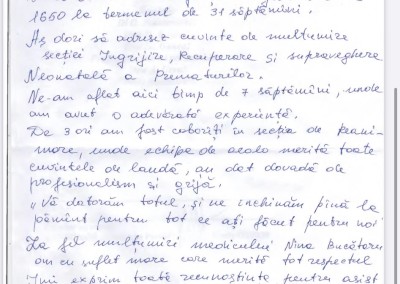 1660 la termenul de 31 săptămîni.
Aș dori să adresez cuvinte de mulțumire
secției Îngrijire, Recuperare și supraveghere
Neonatală a Prematurilor.
Ne-am aflat aici timp de 7 săptămîni, unde
am avut o adevărată experiență.
De 3 ori am fost coborîți în secția de Reani-
mare, unde echipa de acolo merită toate
cuvintele de laudă, au dat dovadă de
profesionalism și grijă.
„Vă datorăm totul, și ne închinăm pînă la
pămînt pentru tot ce ați făcut pentru noi"
La fel mulțumiri medicului Nina Bucătaru
om cu suflet mare care merită tot respectul
Îmi exprim toată recunoștința pentru asist